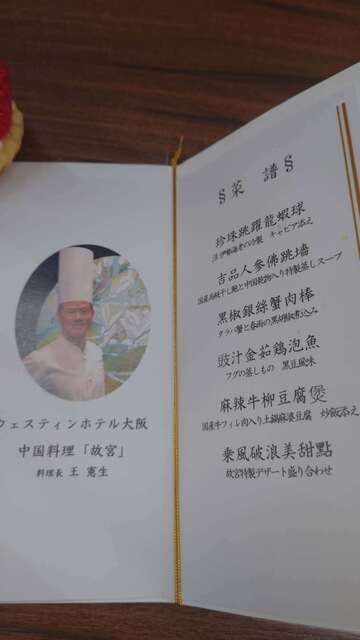 ウェスティンホテル大阪
中国料理「故宮」
料理長 王 憲生
§菜 譜§
珍珠跳躍龍蝦球
活伊勢海老の冷製 キャビア添え
吉品人參佛跳墻
国産高級干し鮑と中国乾物入り特製蒸しスープ
黒椒銀絲蟹肉棒
タラバ蟹と春雨の黒胡椒煮込み
豉汁金茹鶏泡魚
フグの蒸しもの 黒豆風味
麻辣牛柳豆腐煲
国産牛フィレ肉入り土鍋麻婆豆腐 炒飯添え
乗風破浪美甜點
故宮特製デザート盛り合わせ